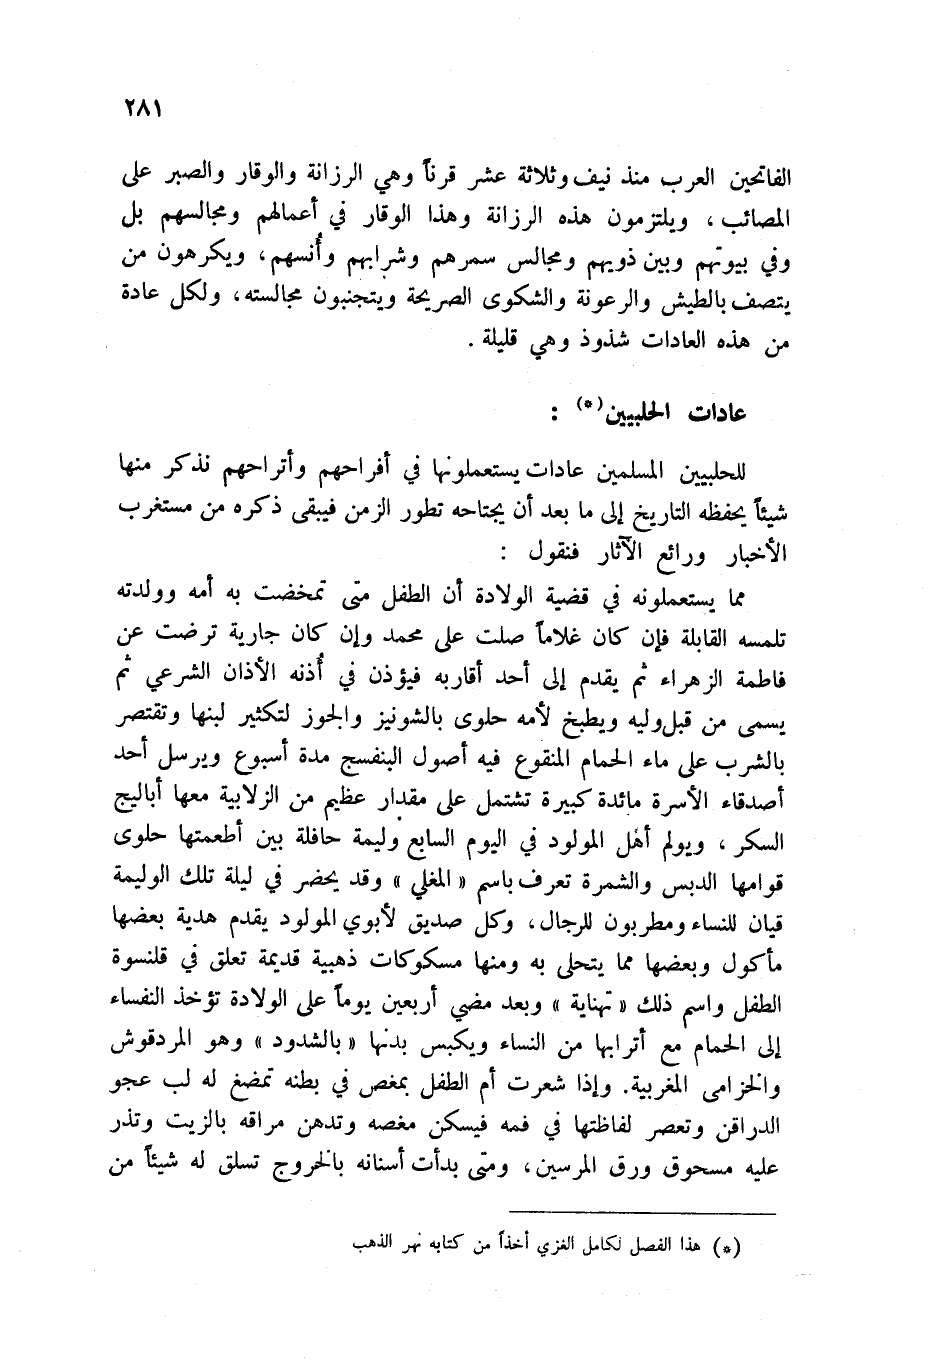 ٢٨١
الفاتحين العرب منذ نيف وثلاثة عشر قرناً وهي الرزانة والوقار والصبر على
المصائب ، ويلتزمون هذه الرزانة وهذا الوقار في أعمالهم ومجالسهم بل
وفي بيوتهم وبين ذويهم ومجالس سمرهم وشرابهم وأُنسهم ، ويكرهون من
يتصف بالطيش والرعونة والشكوى الصريحة ويتجنبون مجالسته ، ولكل عادة
من هذه العادات شذوذ وهي قليلة .
عادات الحلبيين(*) :
للحلبيين المسلمين عادات يستعملونها في أفراحهم وأتراحهم نذكر منها
شيئاً يحفظه التاريخ إلى ما بعد أن يجتاحه تطور الزمن فيبقى ذكره من مستغرب
الأخبار ورائع الآثار فنقول :
مما يستعملونه في قضية الولادة أن الطفل متى تمخضت به أمه وولدته
تلمسه القابلة فإن كان غلاماً صلت على محمد وإن كان جارية ترضت عن
فاطمة الزهراء ثم يقدم إلى أحد أقاربه فيؤذن في أُذنه الأذان الشرعي ثم
يسمى من قبل وليه ويطبخ لأمه حلوى بالشونيز والجوز لتكثير لبنها وتقتصر
بالشرب على ماء الحمام المنقوع فيه أصول البنفسج مدة أسبوع ويرسل أحد
أصدقاء الأسرة مائدة كبيرة تشتمل على مقدار عظيم من الزلابية معها أباليج
السكر ، ويولم أهل المولود في اليوم السابع وليمة حافلة بين أطعمتها حلوى
قوامها الدبس والشمرة تعرف باسم « المغلي » وقد يحضر في ليلة تلك الوليمة
قيان للنساء ومطربون للرجال ، وكل صديق لأبوي المولود يقدم هدية بعضها
مأكول وبعضها مما يتحلى به ومنها مسكوكات ذهبية قديمة تعلق في قلنسوة
الطفل واسم ذلك « تهناية » وبعد مضي أربعين يوماً على الولادة تؤخذ النفساء
إلى الحمام مع أترابها من النساء ويكبس بدنها « بالشدود » وهو المردقوش
والخزامى المغربية . وإذا شعرت أم الطفل بمغص في بطنه تمضغ له لب عجو
الدراقن وتعصر لفاظتها في فمه فيسكن مغصه وتدهن مراقه بالزيت وتذر
عليه مسحوق ورق المرسين ، ومتى بدأت أسنانه بالخروج تسلق له شيئاً من
(*) هذا الفصل لكامل الغزي أخذاً من كتابه نهر الذهب